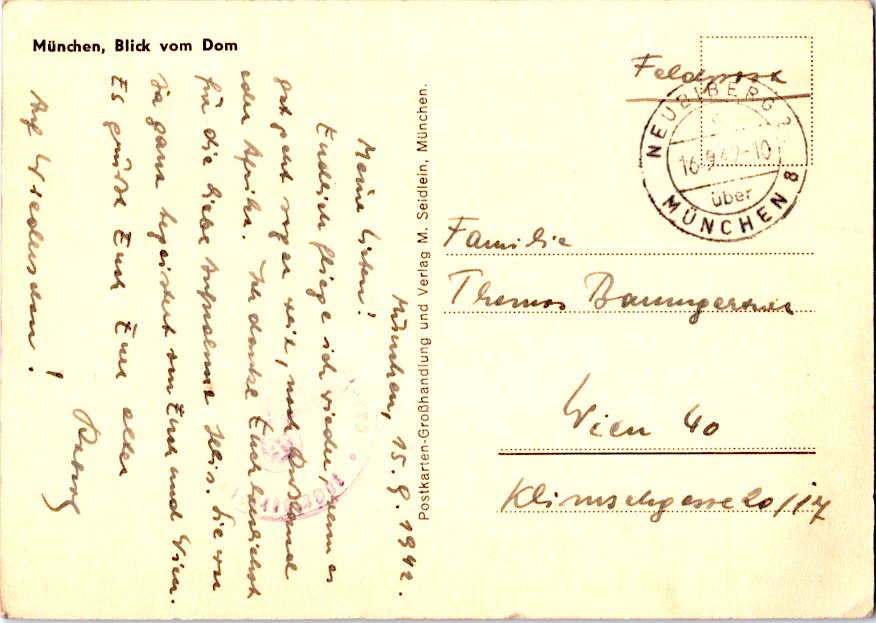 München, Blick vom Dom
München, 15. 9. 1942.
Meine Lieben!
Endlich fliege ich wieder, wenn es
gut geht sogar weit, nach Russland
oder Afrika. Ich danke Euch herzlichst
für die liebe Aufnahme. Sie war
ja ganz begeistert von Euch und Wien.
Es grüßt Euch Euer alter
Auf Wiedersehen!
Postkarten-Großhandlung und Verlag M. Seidlein, München.
Feldpost
NEUBIBERG 2
16.9.42-10
über
MÜNCHEN 8
Familie
Thomas Baumgartner
Wien 40
Klimschgasse 20/17